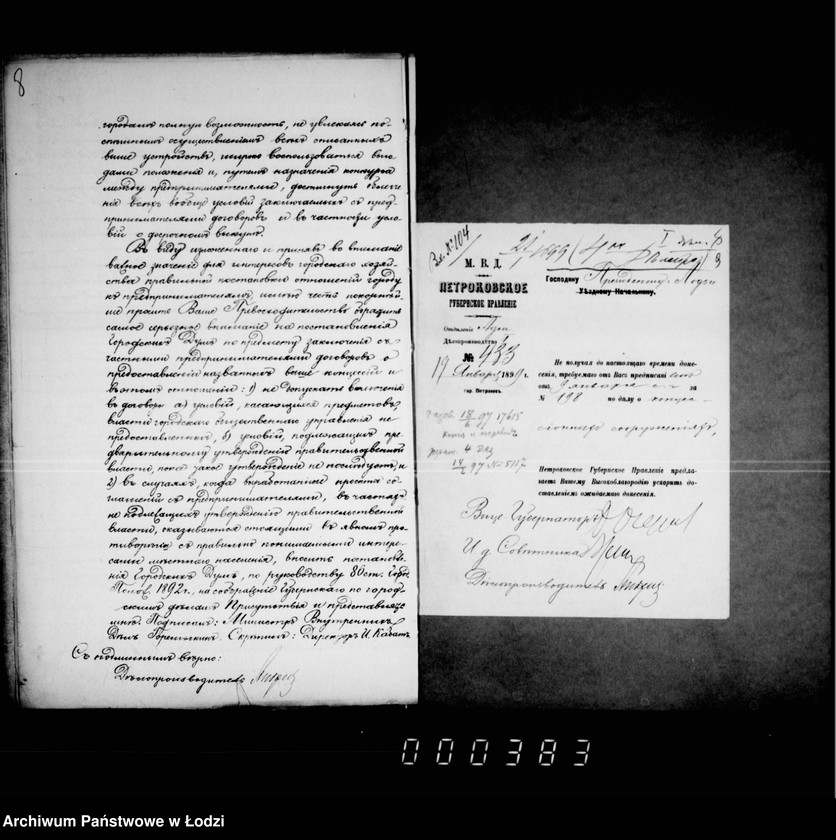 8
городамъ полную возможность, не увлекаясь по-
спѣшнымъ осуществленіемъ всѣхъ описанныхъ
выше устройствъ, широко воспользоваться выго-
дами положенія и, путемъ назначенія конкурса
между предпринимателями, достигнуть облегче-
нія всѣхъ вообще условій заключаемыхъ съ пред-
принимателями договоровъ и въ частности усло-
вій о досрочномъ выкупѣ.
Въ виду изложеннаго и принявъ во вниманіе
важное значеніе для интересовъ городского хозяй-
ства правильной постановки отношеній городу
къ предпринимателямъ, имѣю честь покорнѣй-
ше просить Ваше Превосходительство обратить
самое серьезное вниманіе на постановленія
Городскихъ Думъ по предмету заключенія съ
частными предпринимателями договоровъ о
предоставленіи названныхъ выше концессій и
въ этомъ отношеніи: 1) не допускать включенія
въ договоры а) условій, касающихся предметовъ,
власти городского общественнаго управленія не
предоставленныхъ, б) условій, подлежащихъ пре-
дварительному утвержденію правительственной
власти, пока такое утвержденіе не послѣдуетъ, и
2) въ случаяхъ, когда выработанные проекты со-
глашеній съ предпринимателями, въ частяхъ
не подлежащихъ утвержденію правительственной
власти, оказываются стоящими въ явномъ про-
тиворѣчіи съ правильно понимаемыми интере-
сами мѣстнаго населенія, вносить постановле-
нія Городскихъ Думъ, по руководству 80 ст. Город.
Полож. 1892 г., на соображеніе Губернскаго по город-
скимъ дѣламъ Присутствія и представлять
мнѣ. Подписали: Министръ Внутреннихъ
Дѣлъ Горемыкинъ. Скрѣпилъ: Директоръ И. Кабатъ
Съ подлиннымъ вѣрно:
Дѣлопроизводитель
Вх. № 104
21/I 1899
М. В. Д.
ПЕТРОКОВСКОЕ
ГУБЕРНСКОЕ ПРАВЛЕНІЕ
Отдѣленіе
Дѣлопроизводство
№ 433
19 Января 1899 г.
гор. Петроковъ.
Господину Президенту г. Лодзи
Уѣздному Начальнику.
Не получая до настоящаго времени доне-
сенія, требуемаго отъ Васъ предписаніемъ
отъ 9 января с. г. за
№ 198 по дѣлу о конце-
сіонныхъ сооруженіяхъ,
18/6 97 17615
№ 5117
Петроковское Губернское Правленіе предла-
гаетъ Вашему Высокоблагородію ускорить до-
ставленіемъ ожидаемаго донесенія.
Вице-Губернаторъ
И. д. Совѣтника
Дѣлопроизводитель
000383
Archiwum Państwowe w Łodzi